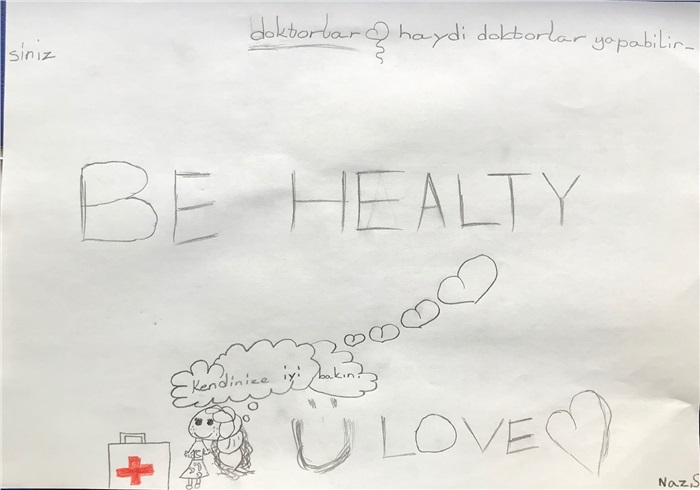 doktorlar haydi doktorlar yapabilir-
siniz
BE HEALTY
Kendinize iyi bakın.
Ü LOVE
Naz.S